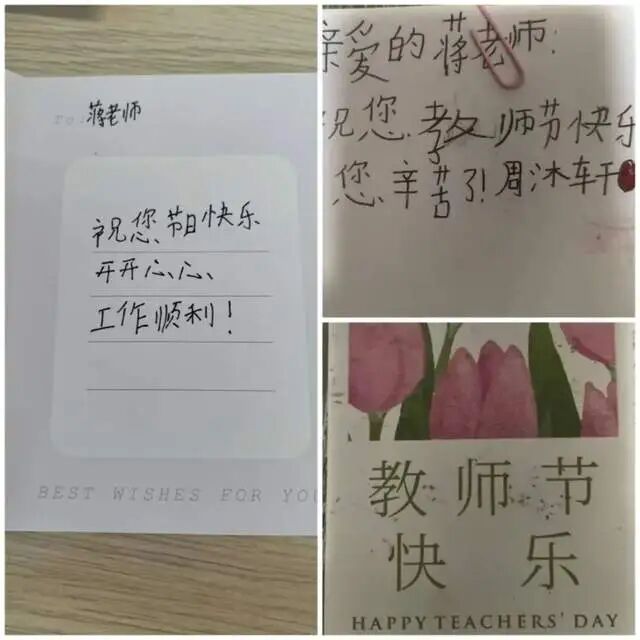 To: 蒋老师
祝您节日快乐
开开心心、
工作顺利!
BEST WISHES FOR YOU
亲爱的蒋老师:
祝您教师节快乐
您辛苦了!周沐轩
教师节
快乐
HAPPY TEACHERS' DAY